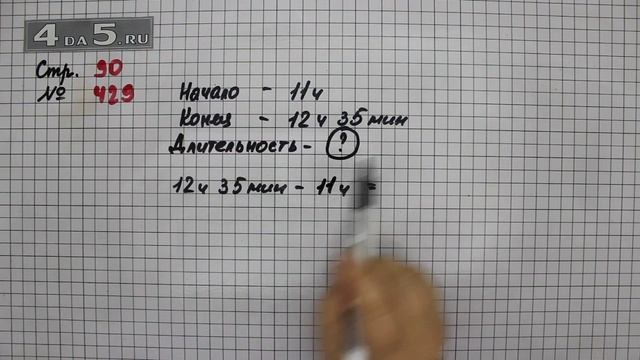 4 DA 5.RU
Стр. 90
№ 429
Начало - 11ч
Конец - 12ч 35мин
Длительность - ?
12ч 35мин - 11ч =